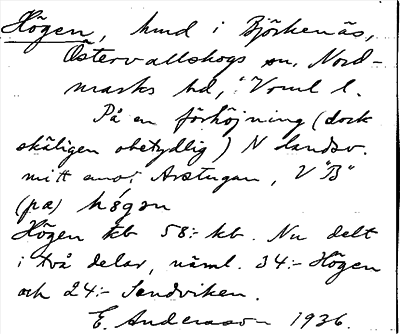 Högen, hmd i Björkenäs,
Östervallskogs sn, Nord-
marks hd, Vrml l.
På en förhöjning (dock
skäligen obetydlig) N landsv.
mitt emot Arstugan, V "B"
(pa) högən
Högen tcb 58:- kb. Nu delt
i två delar, näml. 34:- Högen
och 24:- Sandviken.
E. Andersson 1936.